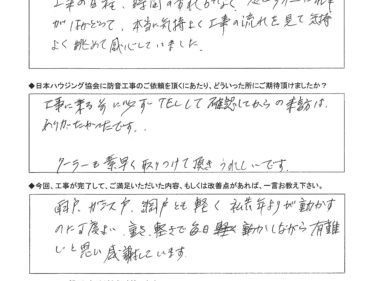 工事の日程、時間の
がはかどって、本当に気持よく工事の流れを見て気持
よく眺めて感心していました。
◆日本ハウジング協会に防音工事のご依頼を頂くにあたり、どういった所にご期待頂けましたか？
工事に来る前に必ずTELして確認してからの来訪は、
ありがたかったです。
クーラーも素早く取りつけて頂きうれしいです。
◆今回、工事が完了して、ご満足いただいた内容、もしくは改善点があれば、一言お教え下さい。
雨戸、ガラス戸、網戸とも軽く 私共年よりが動かす
のに丁度よい、軽さで毎日動かしながら有難
いと思い感謝しています。